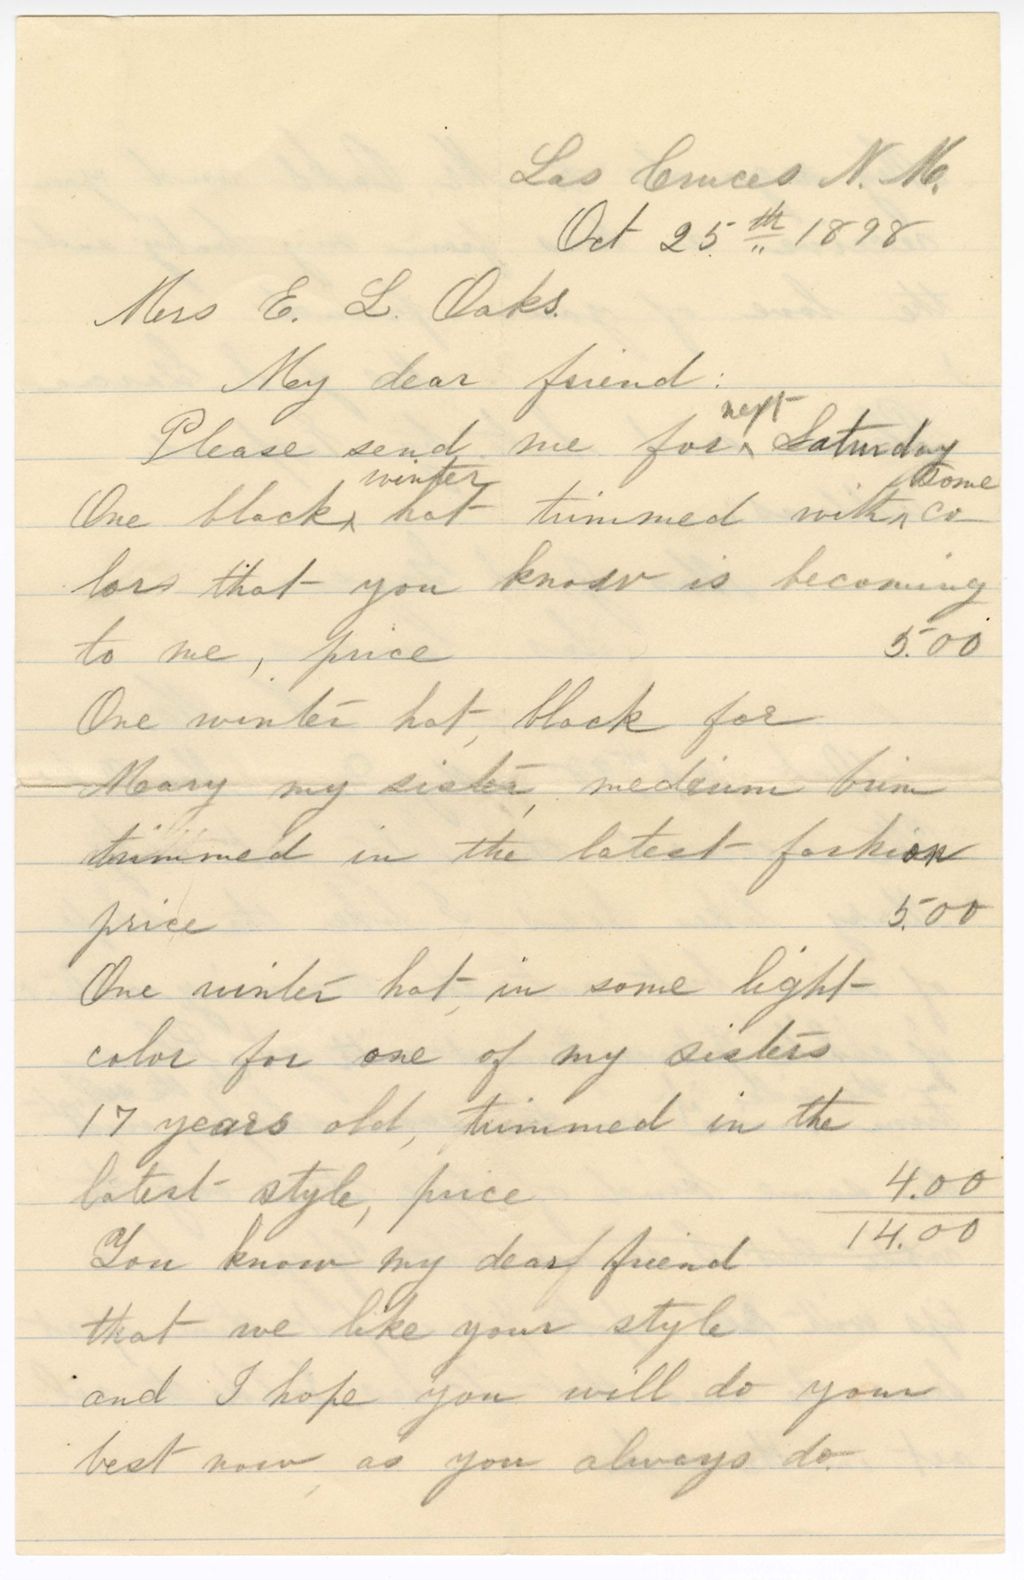 Las Cruces N. M.
Oct 25th 1898
Mrs E. L. Oaks.
My dear friend:
Please send me for next Saturday
One black winter hat trimmed with some co
lors that you know is becoming
to me, price 5.00
One winter hat, black for
Mary my sister, medium brim
trimmed in the latest fashion
price 5.00
One winter hat, in some light
color for one of my sisters
17 years old, trimmed in the
latest style, price 4.00
14.00
You know my dear friend
that we like your style
and I hope you will do your
best now, as you always do.